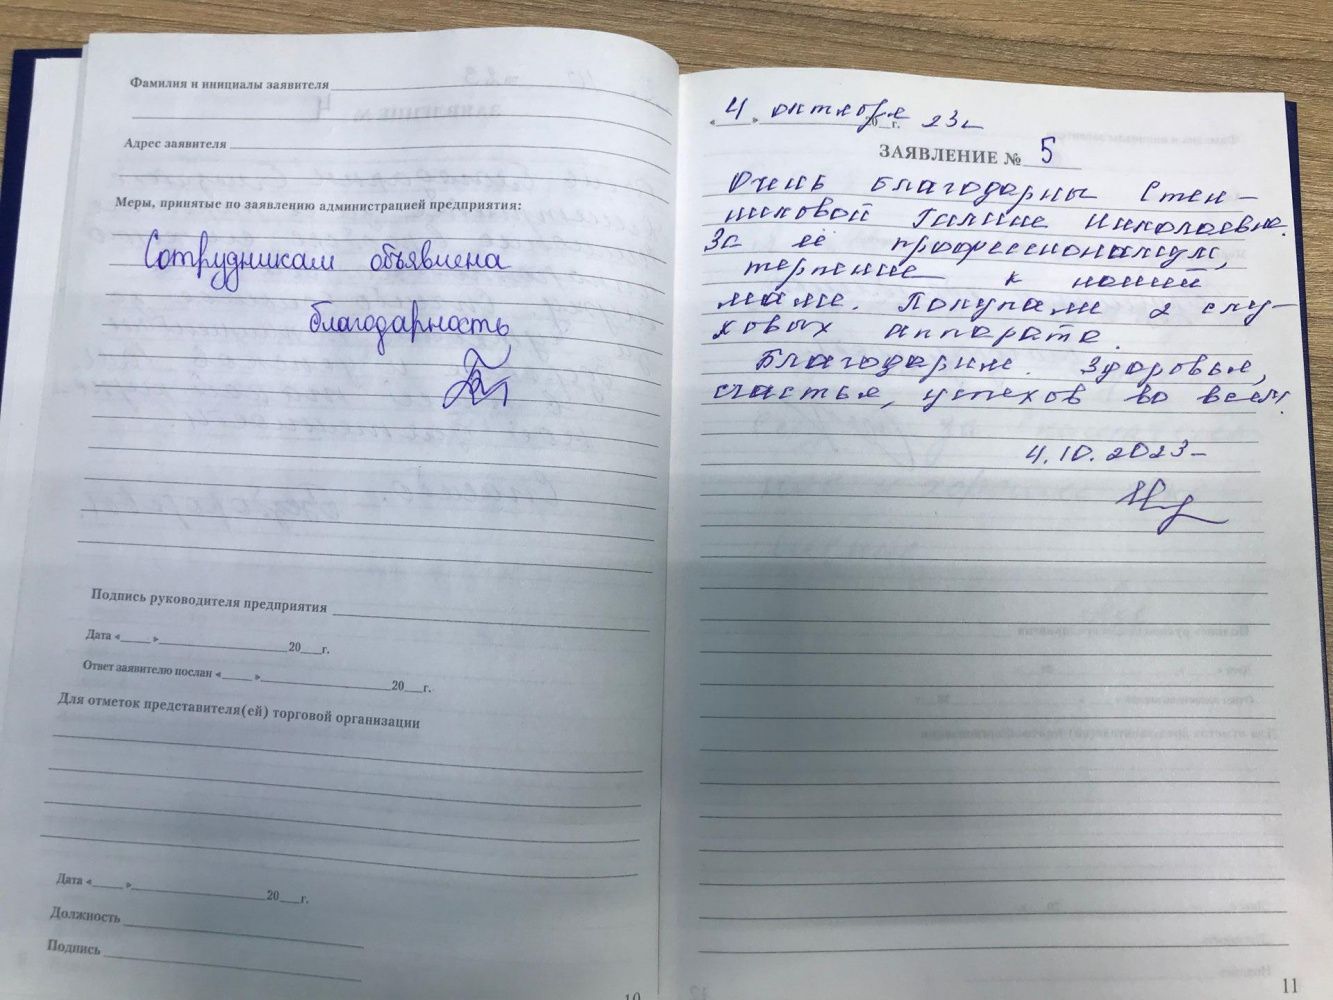 Фамилия и инициалы заявителя
Адрес заявителя
Меры, принятые по заявлению администрацией предприятия:
Сотрудникам объявлена
благодарность
Подпись руководителя предприятия
Дата «___» ___ 20__г.
Ответ заявителю послан «___» ___ 20__г.
Для отметок представителя(ей) торговой организации
Дата «___» ___ 20__г.
Должность
Подпись
10
«4» октября 20__г. 23г
ЗАЯВЛЕНИЕ № 5
Очень благодарны Стен-
никовой Галине Николаевне.
За её профессионализм,
терпение к нашей
маме. Покупали 2 слу-
ховых аппарата.
Благодарим. Здоровья,
счастья, успехов во всем!
4.10.2023
11